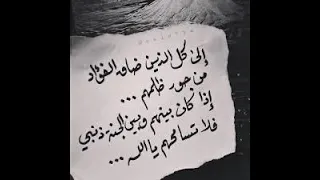 إلى كل الذين ضاقه الفؤاد
من جور ظلمهم ...
إذا كان بينهم وبين الجنة ذنبي
فلا تسامحهم يا الله ...